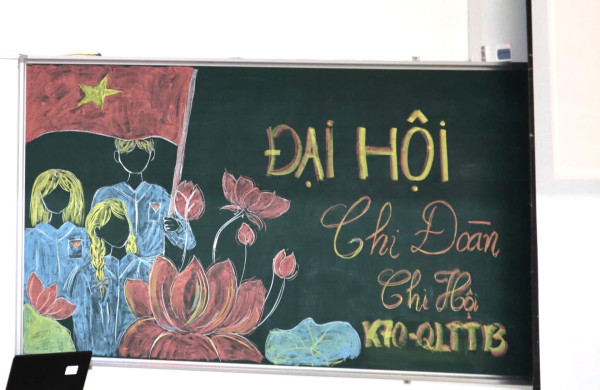 ĐẠI HỘI
Chi Đoàn
Chi Hội
K70-QLTTB